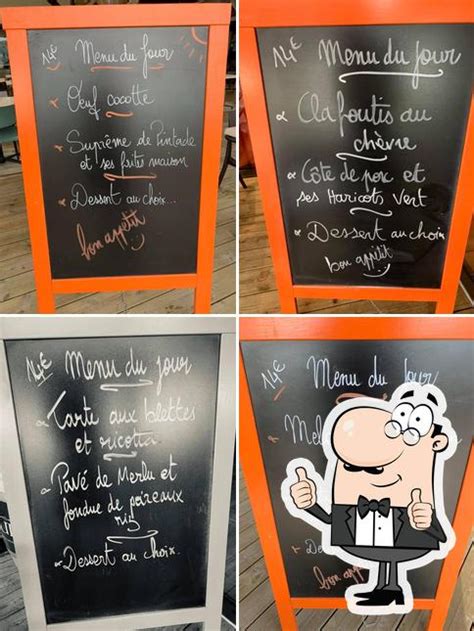 14€ Menu du jour
Oeuf cocotte
Suprême de Pintade
et ses frites maison
Dessert au choix...
bon appetit
14€ Menu du jour
Clafoutis au
chèvre
Côte de porc et
ses Haricots Vert
Dessert au choix
bon appétit
14€ Menu du jour
Tarte aux blettes
et ricotta
Pavé de Merlu et
fondue de poireaux
riz
Dessert au choix.
14€ Menu du Jour
Mel
D
bon app